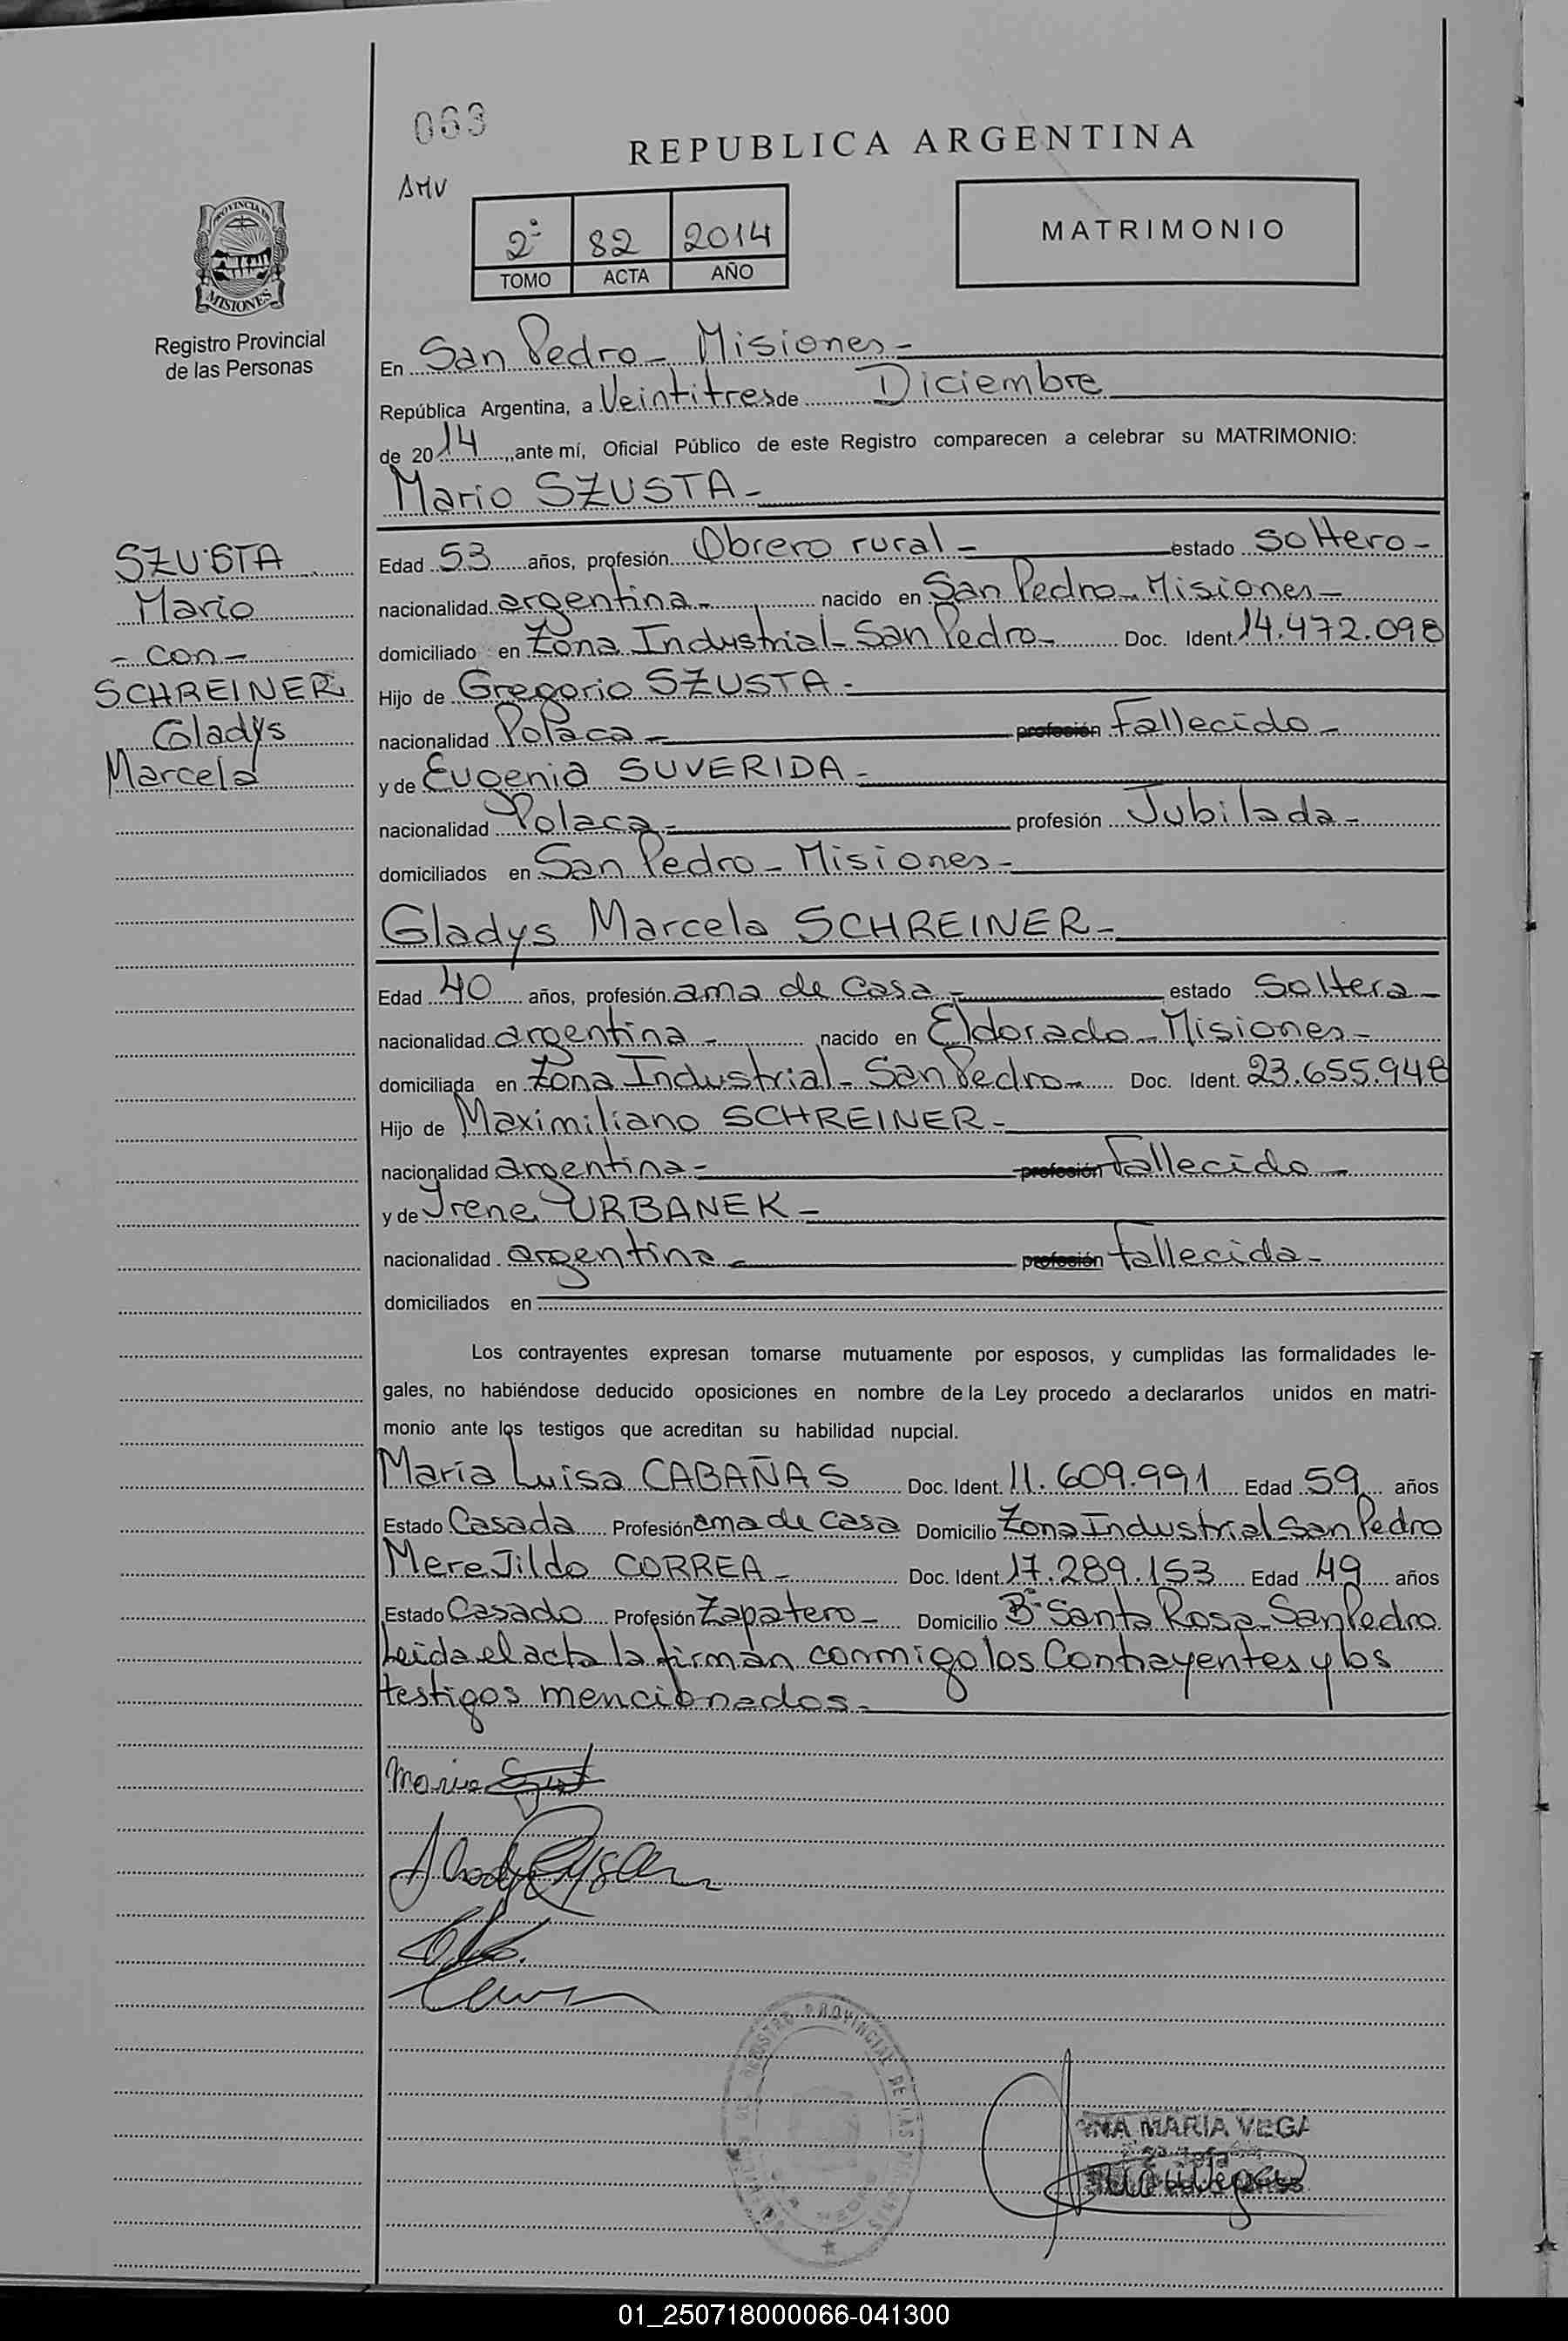 063
REPUBLICA ARGENTINA
AMV
2º 82 2014
TOMO ACTA AÑO
MATRIMONIO
PROVINCIA DE
MISIONES
Registro Provincial
de las Personas
En San Pedro - Misiones -
República Argentina, a Veintitres de Diciembre
de 2014, ante mí, Oficial Público de este Registro comparecen a celebrar su MATRIMONIO:
Mario SZUSTA -
SZUSTA
Mario
- con -
SCHREINER
Gladys
Marcela
Edad 53 años, profesión Obrero rural - estado Soltero -
nacionalidad argentina - nacido en San Pedro - Misiones -
domiciliado en Zona Industrial - San Pedro - Doc. Ident. 14.472.098
Hijo de Gregorio SZUSTA -
nacionalidad Polaca - profesión Fallecido -
y de Eugenia SUVERIDA -
nacionalidad Polaca - profesión Jubilada -
domiciliados en San Pedro - Misiones -
Gladys Marcela SCHREINER -
Edad 40 años, profesión ama de casa - estado Soltera -
nacionalidad argentina - nacido en Eldorado - Misiones -
domiciliada en Zona Industrial - San Pedro - Doc. Ident. 23.655.948
Hijo de Maximiliano SCHREINER -
nacionalidad argentina - profesión Fallecido -
y de Irene URBANEK -
nacionalidad argentina - profesión fallecida -
domiciliados en
Los contrayentes expresan tomarse mutuamente por esposos, y cumplidas las formalidades le-
gales, no habiéndose deducido oposiciones en nombre de la Ley procedo a declararlos unidos en matri-
monio ante los testigos que acreditan su habilidad nupcial.
María Luisa CABAÑAS Doc. Ident. 11.609.991 Edad 59 años
Estado Casada Profesión ama de casa Domicilio Zona Industrial San Pedro
MereJildo CORREA - Doc. Ident. 17.289.153 Edad 49 años
Estado Casado Profesión Zapatero - Domicilio Bº Santa Rosa - San Pedro
Leida el acta la firman conmigo los Contrayentes y los
testigos mencionados -
Mario
REGISTRO PROVINCIAL DE LAS PERSONAS
ANA MARIA VEGA
01_250718000066-041300